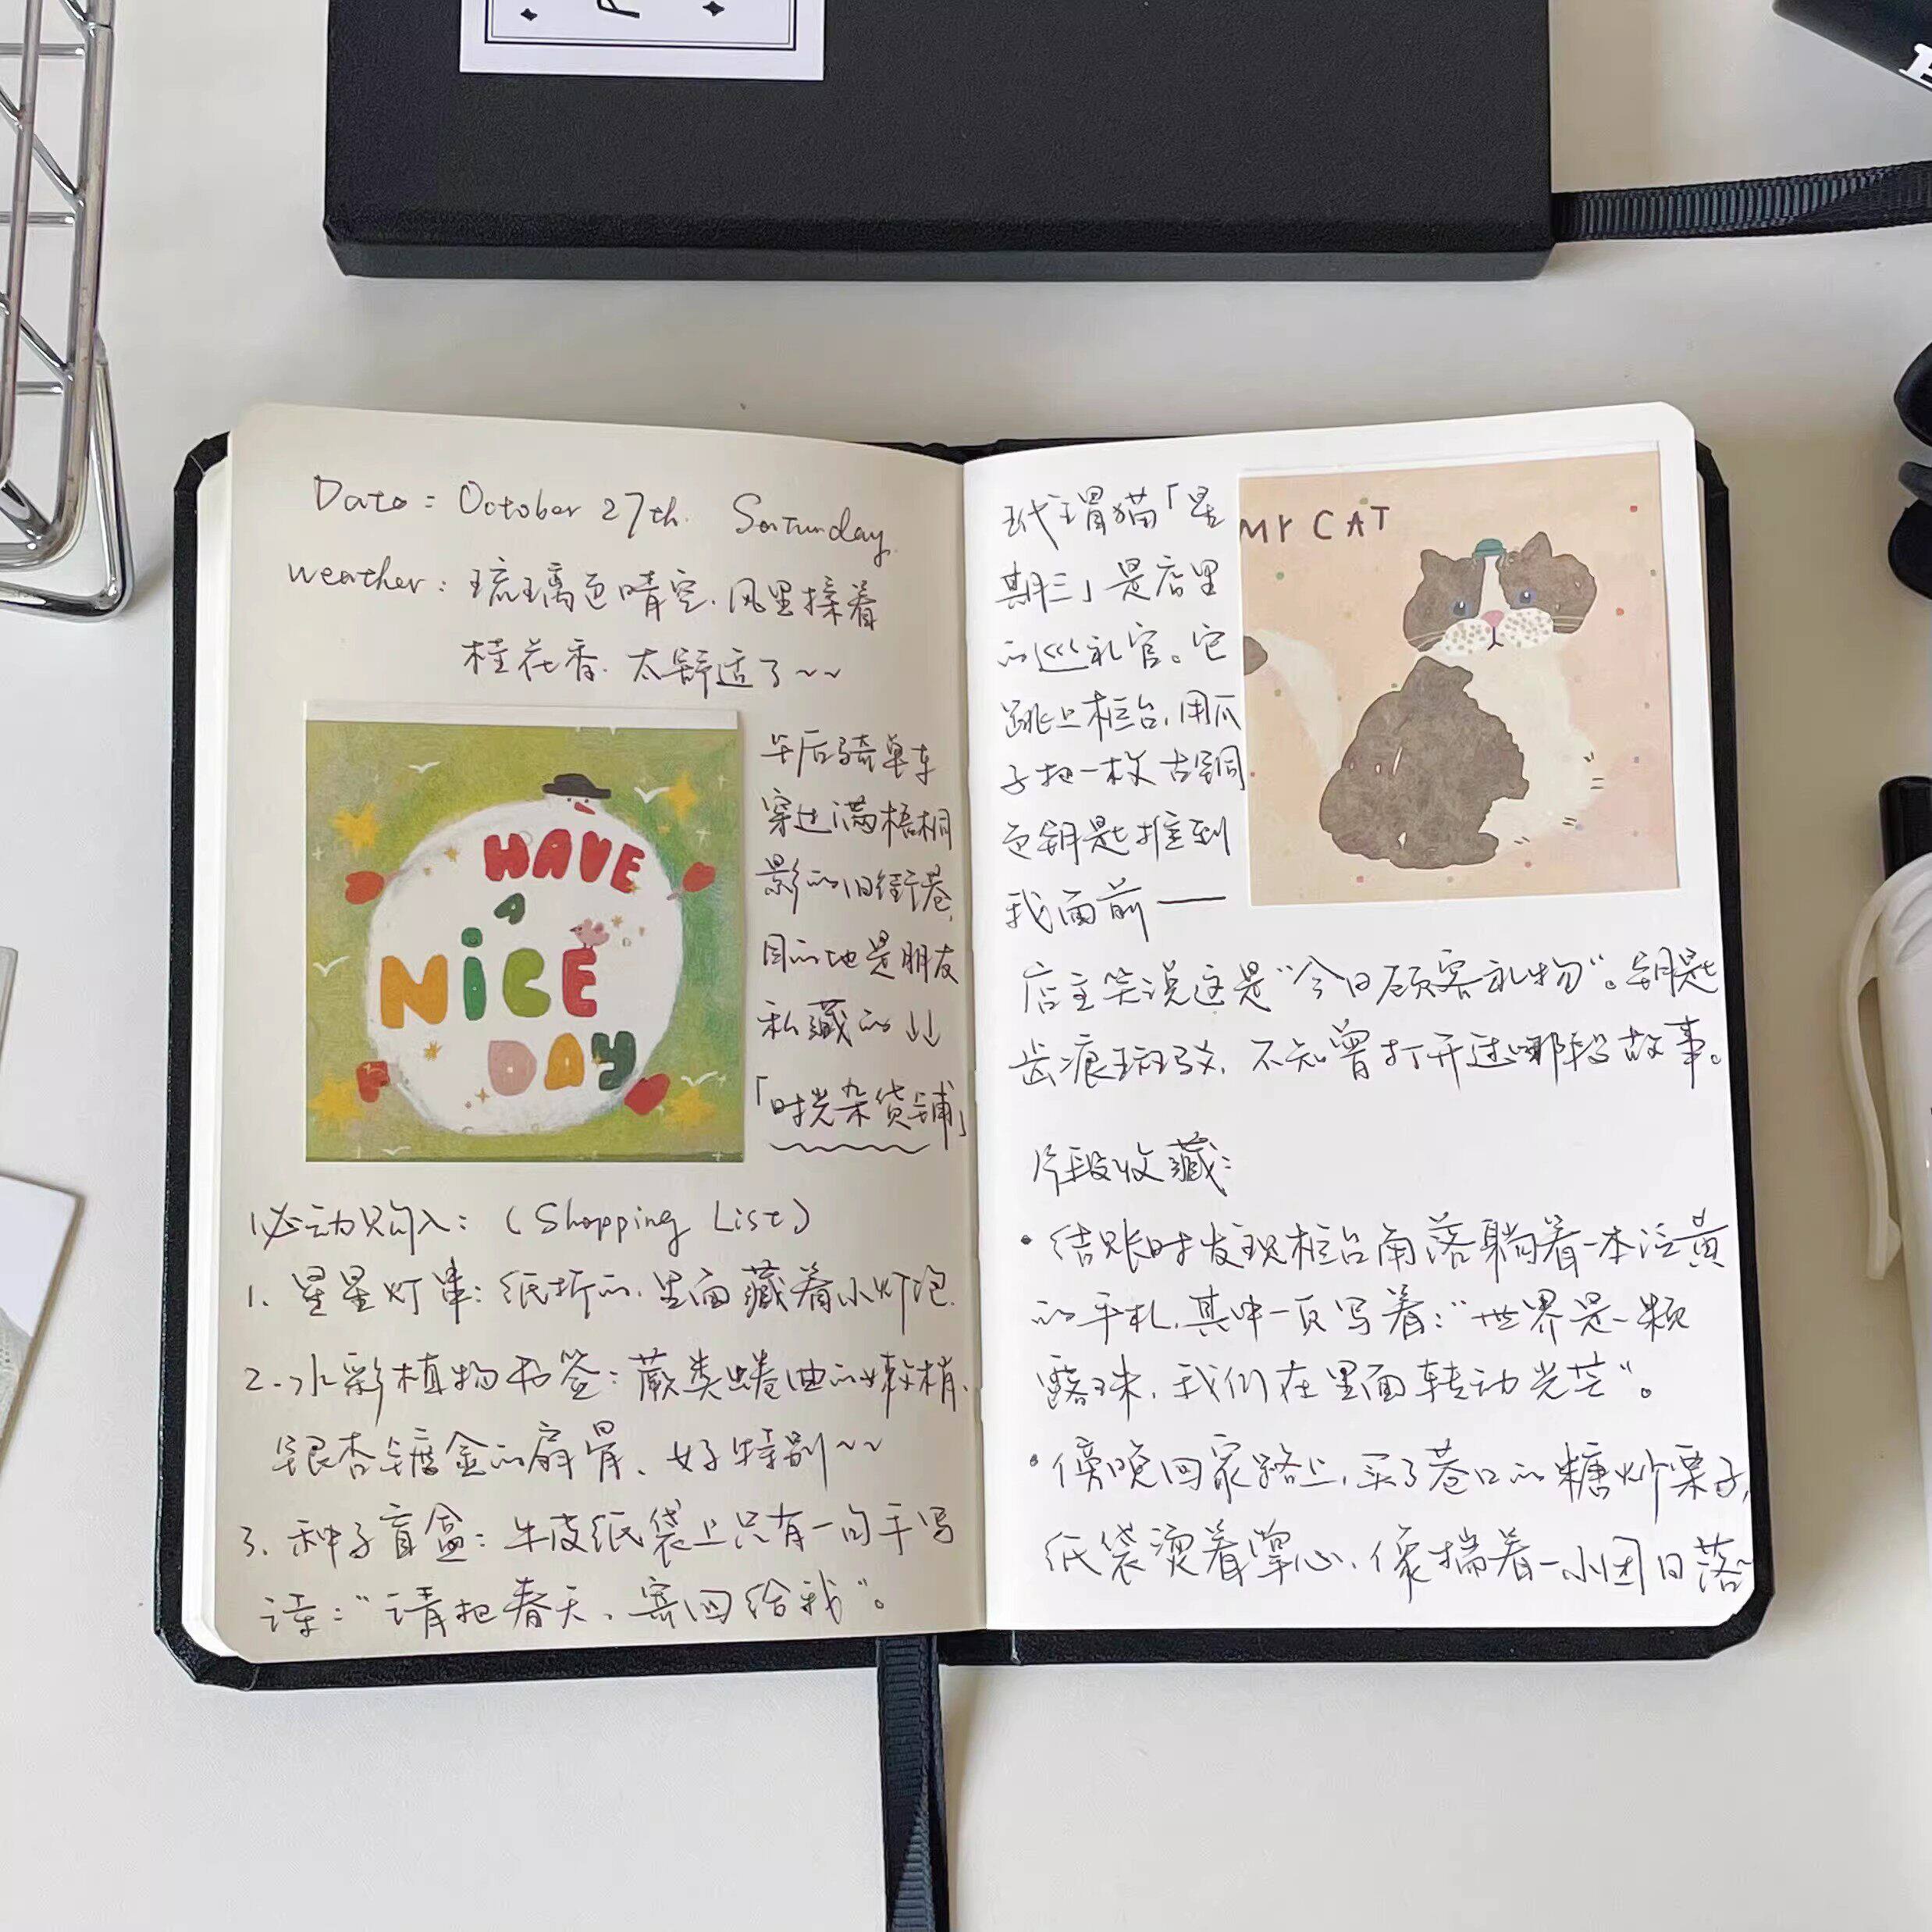 Date: October 27th. Saturnday
weather: 琉璃色晴空、风里揉着
桂花香. 太舒适了~~
HAVE
A
NICE
DAY
午后骑单车
穿过满梧桐
影的旧街巷,
目的地是朋友
私藏的↓↓
「时光杂货铺」
心动购入: (Shopping List)
1、星星灯串: 纸折的、里面藏着小灯泡.
2.水彩植物书签: 蕨类蜷曲的嫩梢、
银杏镀金的扇骨、好特别~~
3、种子盲盒: 牛皮纸袋上只有一句手写
诗: “请把春天、寄回给我”。
MY CAT
玳瑁猫「星
期三」是店里
的巡礼官。它
跳上柜台,用爪
子把一枚古铜
色钥匙推到
我面前——
店主笑说这是“今日顾客礼物”。钥匙
齿痕斑驳,不知曾打开过哪段故事。
片段收藏:
• 结账时发现柜台角落躺着一本泛黄
的手札,其中一页写着: “世界是一颗
露珠,我们在里面转动光芒”。
• 傍晚回家路上,买了巷口的糖炒栗子,
纸袋烫着掌心、像揣着一小团日落~